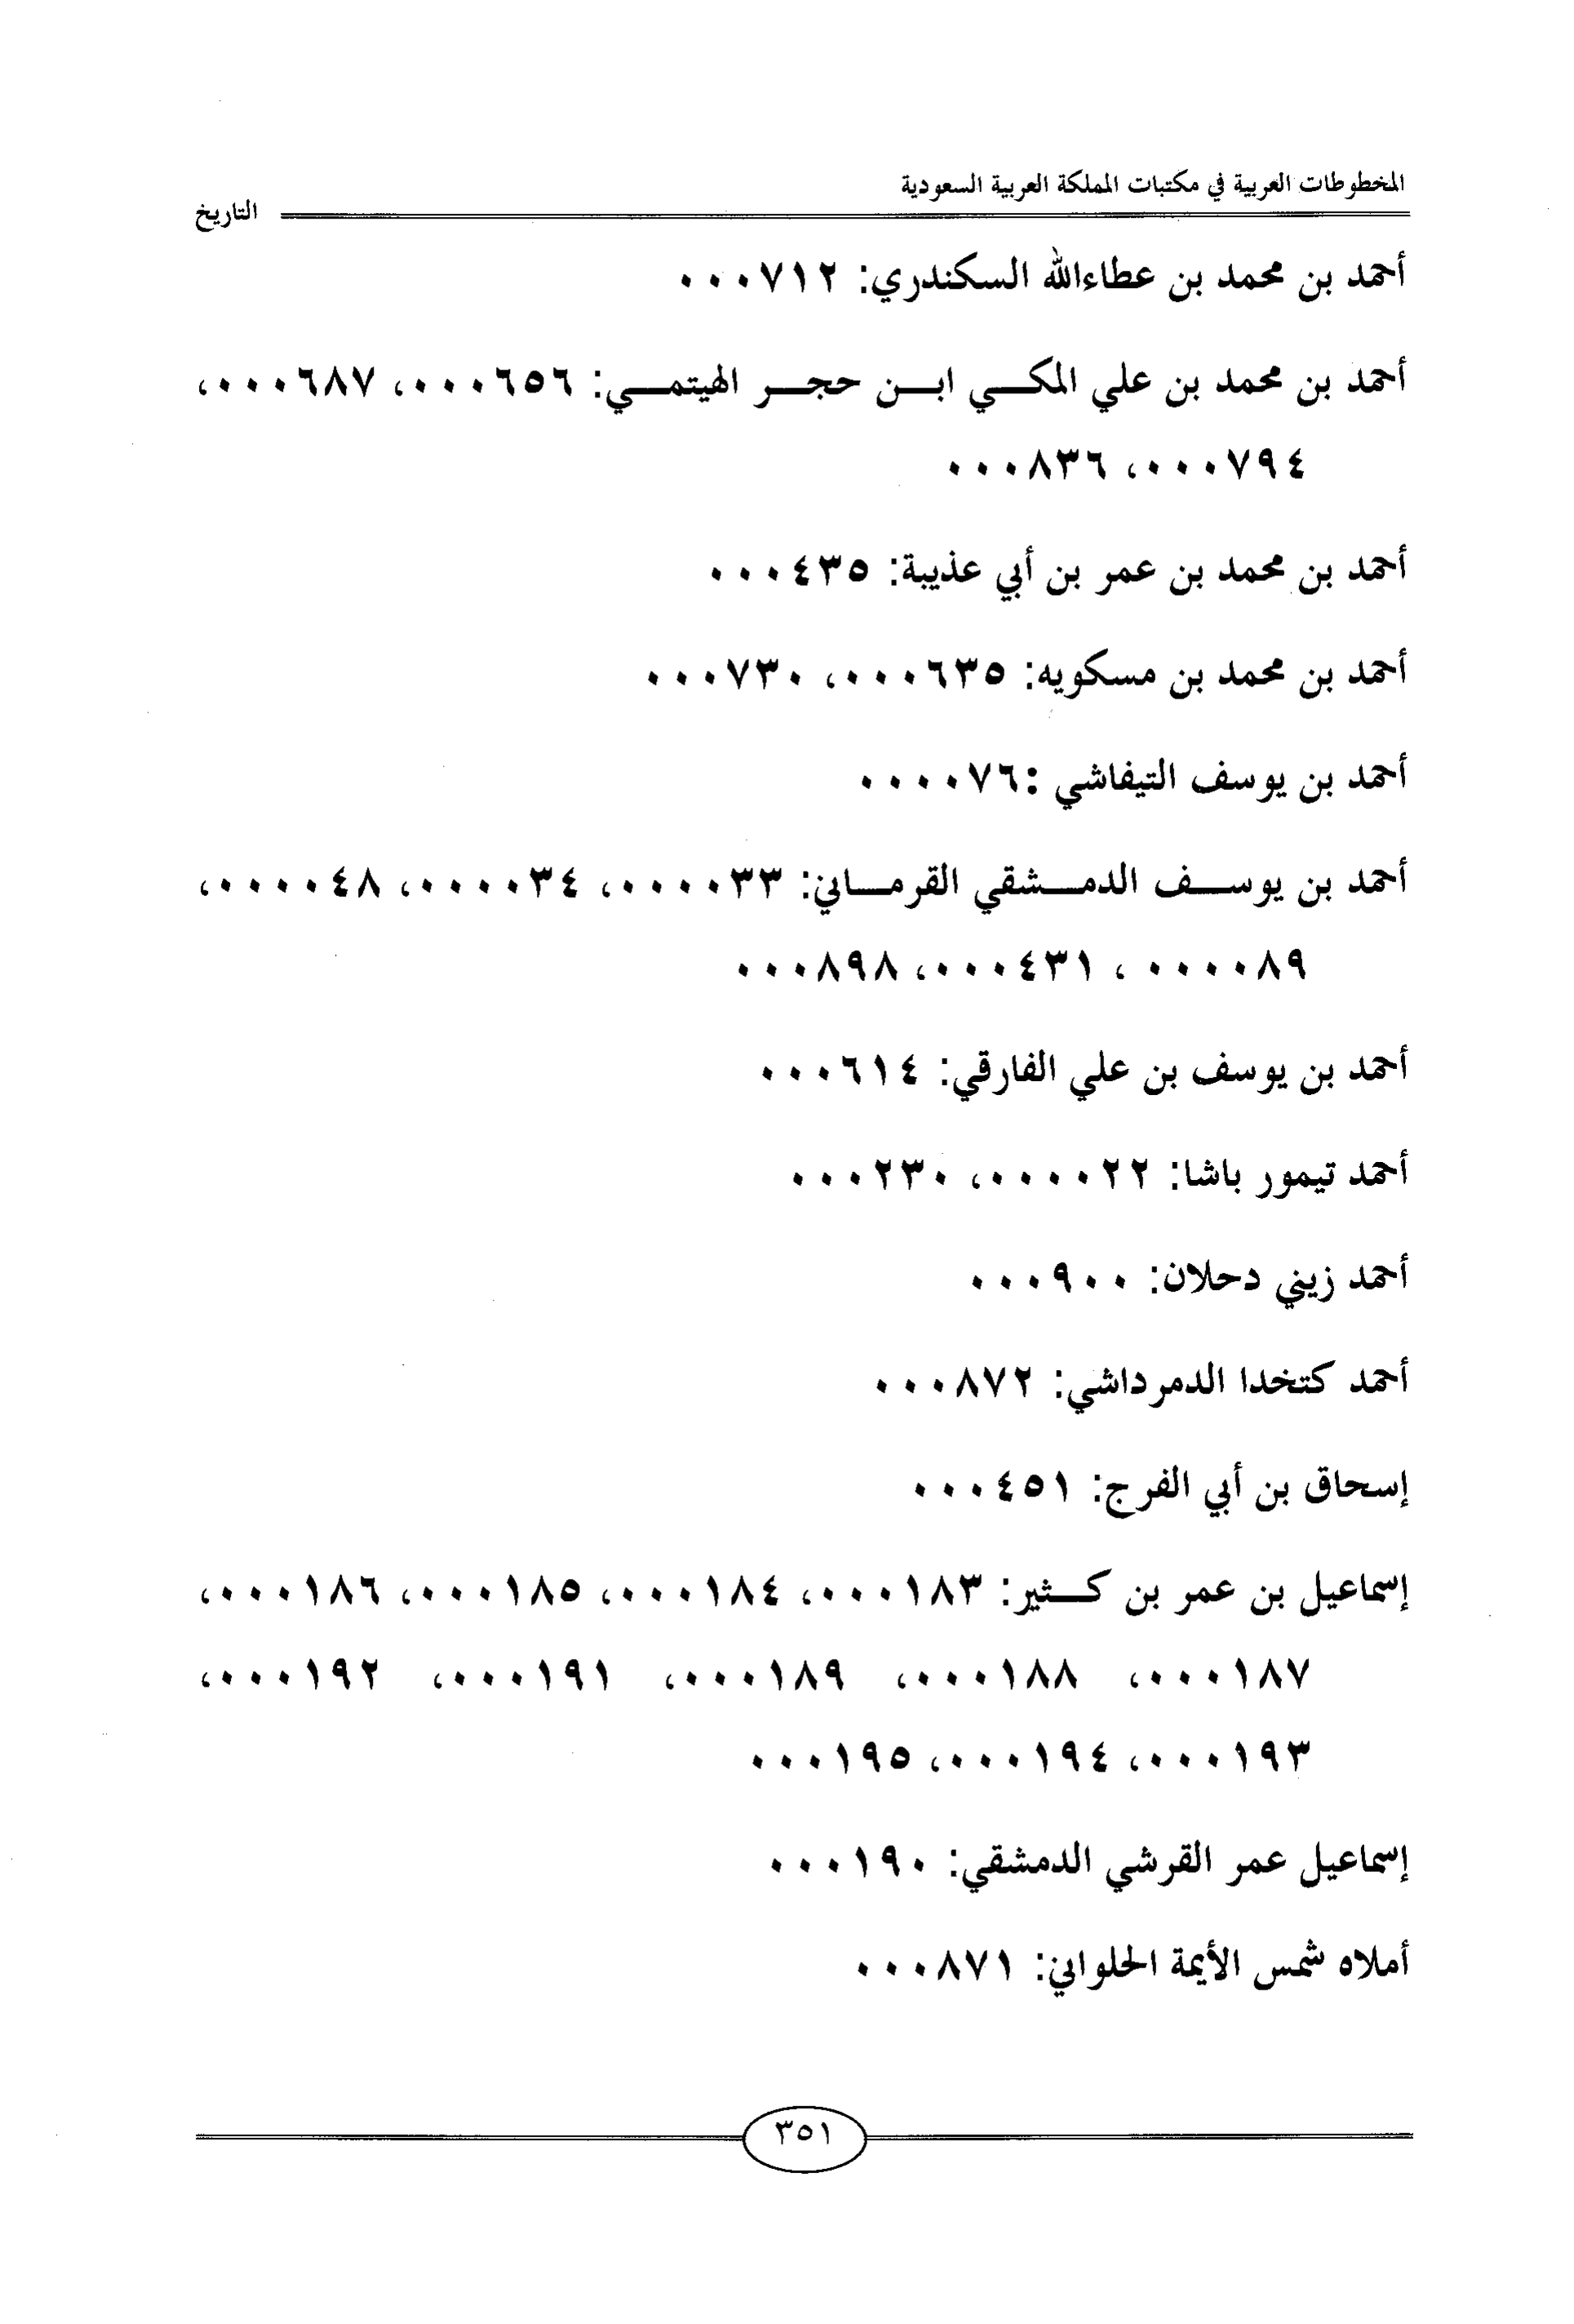 المخطوطات العربية في مكتبات المملكة العربية السعودية
التاريخ
أحمد بن محمد بن عطاءالله السكندري: ٠٠٠٧١٢
أحمد بن محمد بن علي المكـــي ابـــن حجـــر الهيتمـــي: ٠٠٠٦٥٦، ٠٠٠٦٨٧،
٠٠٠٧٩٤، ٠٠٠٨٣٦
أحمد بن محمد بن عمر بن أبي عذيبة: ٠٠٠٤٣٥
أحمد بن محمد بن مسكويه: ٠٠٠٦٣٥، ٠٠٠٧٣٠
أحمد بن يوسف التيفاشي :٠٠٠٠٧٦
أحمد بن يوســـف الدمـــشقي القرمـــاني: ٠٠٠٠٣٣، ٠٠٠٠٣٤، ٠٠٠٠٤٨،
٠٠٠٠٨٩ ، ٠٠٠٤٣١، ٠٠٠٨٩٨
أحمد بن يوسف بن علي الفارقي: ٠٠٠٦١٤
أحمد تيمور باشا: ٠٠٠٠٢٢، ٠٠٠٢٣٠
أحمد زيني دحلان: ٠٠٠٩٠٠
أحمد كتخدا الدمرداشي: ٠٠٠٨٧٢
إسحاق بن أبي الفرج: ٠٠٠٤٥١
إسماعيل بن عمر بن كـــثير: ٠٠٠١٨٣، ٠٠٠١٨٤، ٠٠٠١٨٥، ٠٠٠١٨٦،
٠٠٠١٨٧، ٠٠٠١٨٨، ٠٠٠١٨٩، ٠٠٠١٩١، ٠٠٠١٩٢،
٠٠٠١٩٣، ٠٠٠١٩٤، ٠٠٠١٩٥
إسماعيل عمر القرشي الدمشقي: ٠٠٠١٩٠
أملاه شمس الأيمة الحلواني: ٠٠٠٨٧١
٣٥١